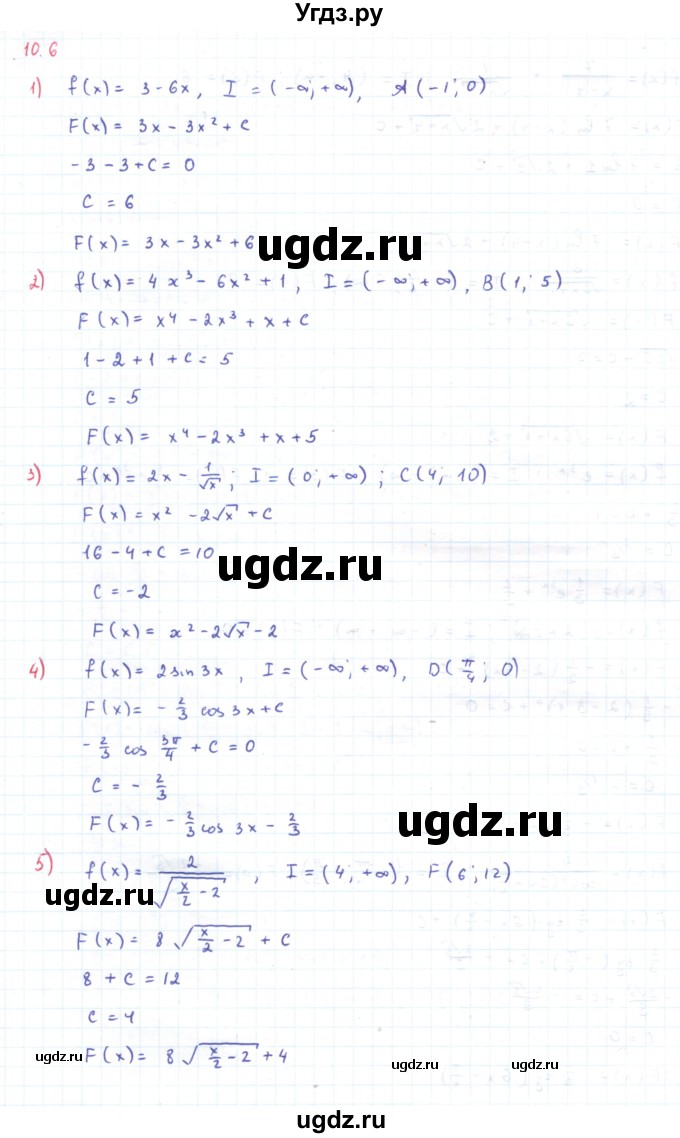 Угдз.ру
10.6
1) f(x) = 3 - 6x, I = (-∞; +∞), A(-1; 0)
F(x) = 3x - 3x² + C
-3 - 3 + C = 0
C = 6
F(x) = 3x - 3x² + 6
ugdz.ru
2) f(x) = 4x³ - 6x² + 1, I = (-∞; +∞), B(1; 5)
F(x) = x⁴ - 2x³ + x + C
1 - 2 + 1 + C = 5
C = 5
F(x) = x⁴ - 2x³ + x + 5
3) f(x) = 2x - 1/√x; I = (0; +∞); C(4; 10)
F(x) = x² - 2√x + C
16 - 4 + C = 10
ugdz.ru
C = -2
F(x) = x² - 2√x - 2
4) f(x) = 2 sin 3x, I = (-∞; +∞), D(π/4; 0)
F(x) = - 2/3 cos 3x + C
- 2/3 cos 3π/4 + C = 0
C = - 2/3
F(x) = - 2/3 cos 3x - 2/3
ugdz.ru
5) f(x) = 2/√(x/2 - 2), I = (4; +∞), F(6; 12)
ugdz.ru
F(x) = 8 √(x/2 - 2) + C
8 + C = 12
C = 4
F(x) = 8 √(x/2 - 2) + 4
ugdz.ru
ugdz.ru
ugdz.ru
ugdz.ru